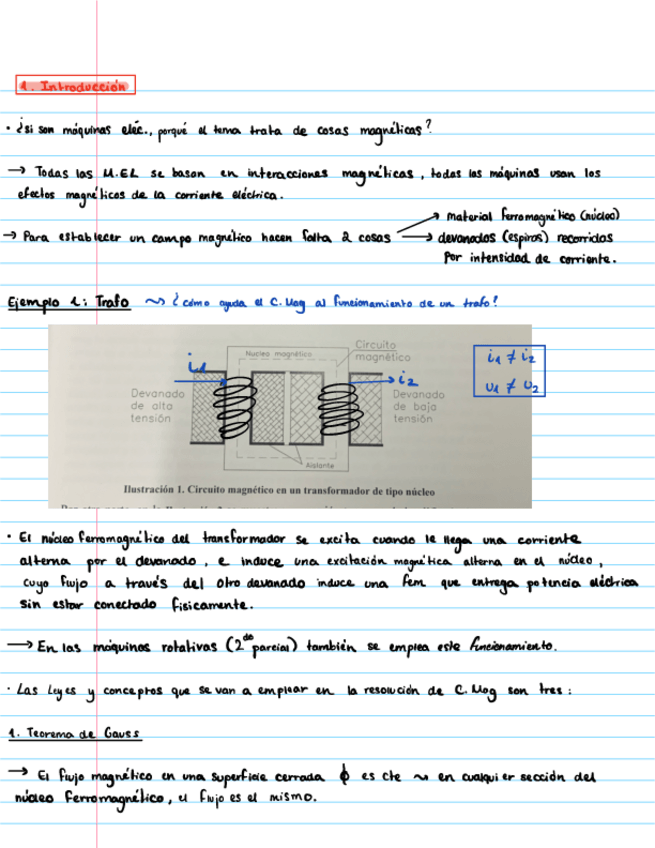 1. Introducción
• ¿si son máquinas eléc., porqué el tema trata de cosas magnéticas?
→ Todas las M.EL se basan en interacciones magnéticas, todas las máquinas usan los
efectos magnéticos de la corriente eléctrica.
→ Para establecer un campo magnético hacen falta 2 cosas
→ material ferromagnético (núcleo)
→ devanados (espiras) recorridas
por intensidad de corriente.
Ejemplo 1: Trafo ~> ¿cómo ayuda el C. Mag al funcionamiento de un trafo?
Núcleo magnético
Circuito
magnético
i1
i2
i1 ≠ i2
U1 ≠ U2
Devanado
de alta
tensión
Devanado
de baja
tensión
Aislante
Ilustración 1. Circuito magnético en un transformador de tipo núcleo
• El núcleo ferromagnético del transformador se excita cuando le llega una corriente
alterna por el devanado, e induce una excitación magnética alterna en el núcleo,
cuyo flujo a través del otro devanado induce una fem que entrega potencia eléctrica
sin estar conectado físicamente.
→ En las máquinas rotativas (2do parcial) también se emplea este funcionamiento.
• Las Leyes y conceptos que se van a emplear en la resolución de C. Mag son tres:
1. Teorema de Gauss
→ El flujo magnético en una superficie cerrada ϕ es cte ~> en cualquier sección del
núcleo ferromagnético, el flujo es el mismo.